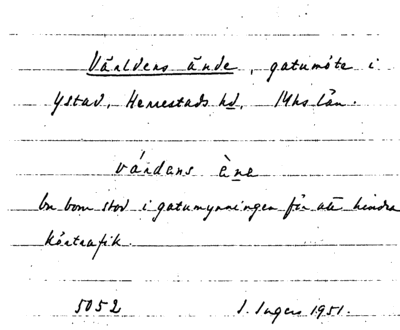 Världens ände, gatumöte i
Ystad, Herrestads hd, Mhs län.
várdans ène
En bom stod i gatumynningen för att hindra
körtrafik.
5052 I. Ingers 1951.